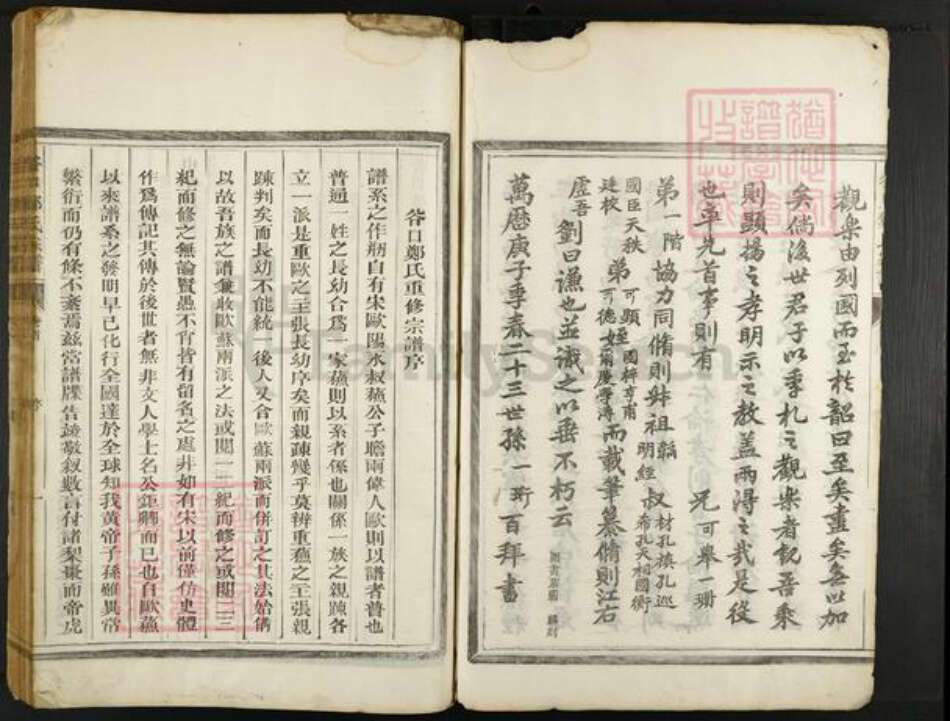 觀樂由列國而至於韶曰至矣盡矣無以加
矣倘後世君子以季札之觀樂者觀吾乘
則顯揚之孝明示之教盖兩得之哉是役
也率先首事則有 兄可舉一珊
第一階協力同脩則姪祖 明經 叔 材孔 孔巡 希孔 天相 國衡
國臣 天秩 弟 可顯 姪 國 而載筆纂脩則江右
建校 可德
虛吾 劉曰謙也並識之以垂不朽云
萬曆庚子季春二十三世孫一珩百拜書
谷口鄭氏重修宗譜序
譜系之作昉自有宋歐陽永叔蘇公子瞻兩偉人歐則以譜者普也
普通一姓之長幼合爲一家蘇則以系者係也關係一族之親踈各
立一派是重歐之主張長幼序矣而親疎幾乎莫辨重蘇之主張親
踈判矣而長幼不能統一後人又合歐蘇兩派而併訂之其法始備
以故吾族之譜兼收歐蘇兩派之法或閱一二紀而修之或閱二三
紀而修之無論賢愚不肖皆有留名之處非如有宋以前僅仿史體
作爲傳記其傳於後世者無非文人學士名公鉅卿而已也自歐蘇
以來譜系之發明早已化行全國達於全球知我黄帝子孫雖異常
繁衍而仍有條不紊焉兹當譜牒告竣敬叙數言付諸梨棗而帝虎
FamilySearch